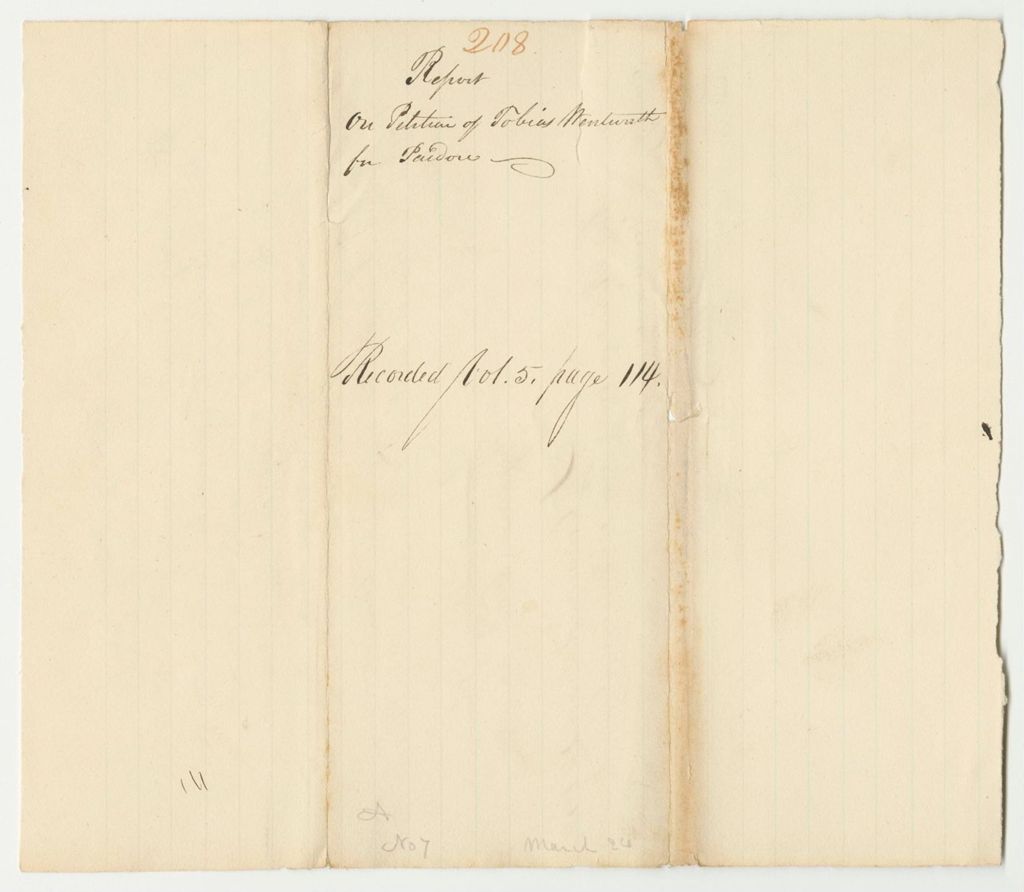 208.
Report
On Petition of Tobias Wentworth
for Pardon
Recorded Vol. 5. page 114.
A
No 7 March 24